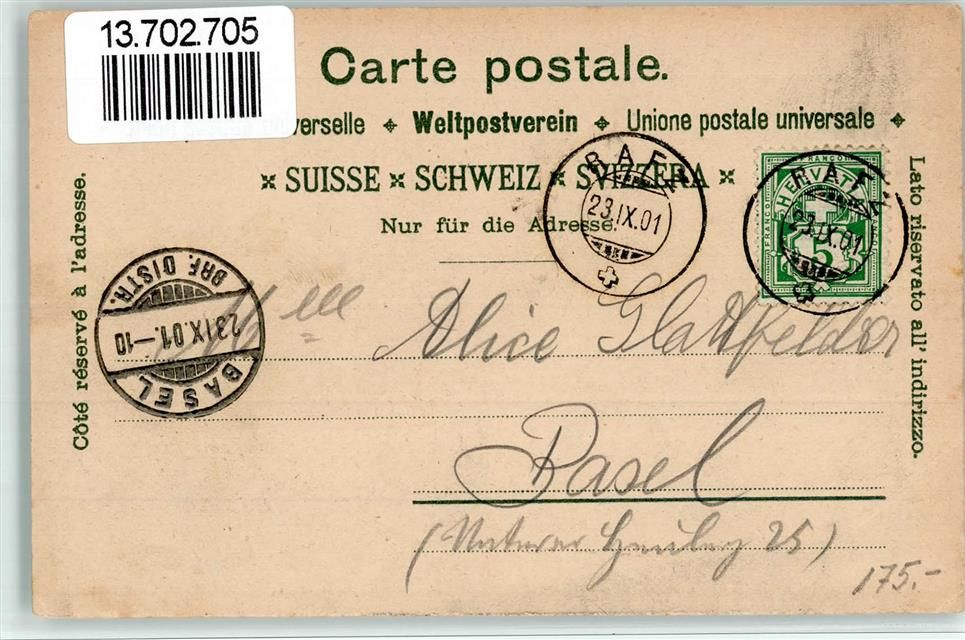 13.702.705
Carte postale.
verselle ✦ Weltpostverein ✦ Unione postale universale ✦
SUISSE SCHWEIZ SVIZZERA
Nur für die Adresse.
Côté réservé à l'adresse.
Lato riservato all' indirizzo.
RAFZ
23.IX.01
FRANCO
HELVETIA
FRANCO
FRANCO
5
RAFZ
23.IX.01
BRF. DISTR.
23.IX.01.-10
BASEL
Mlle Alice Glattfelder
Basel
(Unterer 25)
175.-